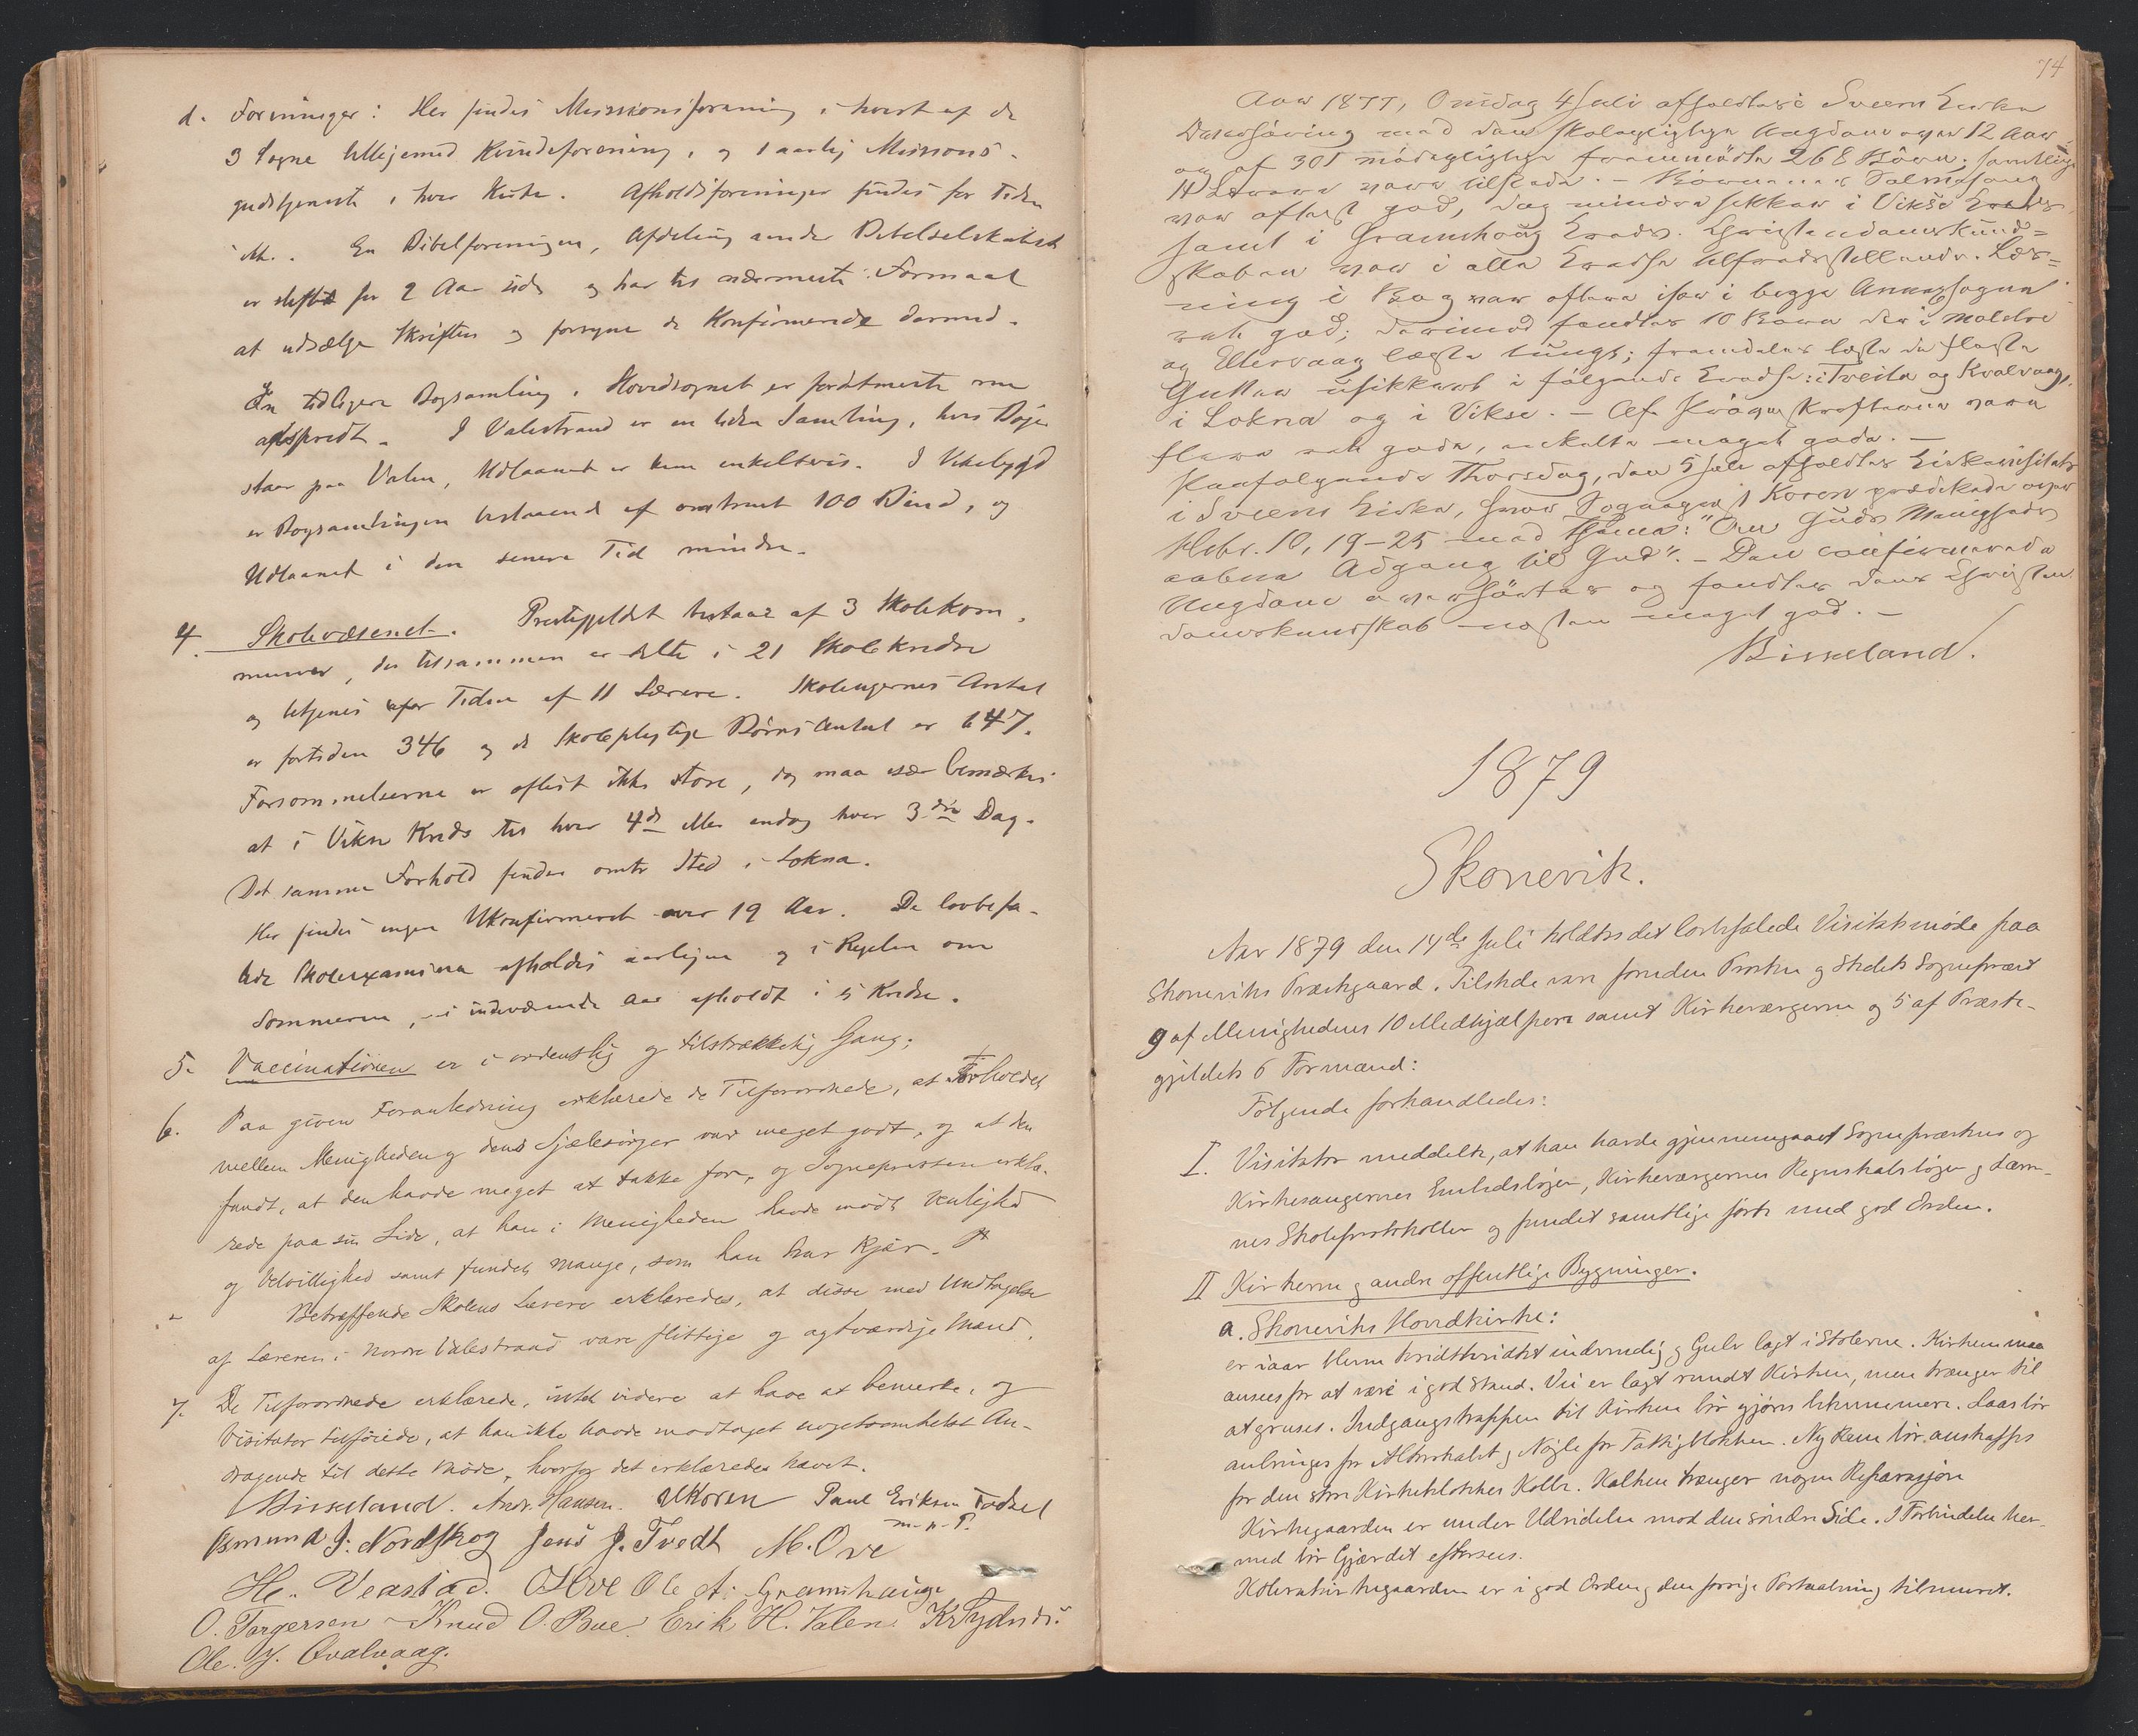 d. Foreninger: Her findes Missionsforening i hvert af de
3 Sogne tilligemed Kvindeforening, og 1 aarlig Missions-
gudstjeneste i hver Kirke. Afholdsforeninger findes for Tiden
ikke. En Bibelforeningen, Afdeling under Bibelselskabet
er stiftet for 2 Aar siden og har til nærmeste Formaal
at udsælge Skriften og forsyne de Konfirmerede dermed.
En tidligere Bogsamling i Hovedsognet er fordetmeste
adspredt. I Valestrand er en liden Samling, hvis Bøger
staar paa Valen, Udlaanet er kun enkeltvis. I Vikebygd
er Bogsamlingen bestaaende af omtrent 100 Bind, og
Udlaanet i den senere Tid mindre.
4. Skolevæsenet. Prestegjeldet bestaar af 3 Skolekom-
muner, der tilsammen er delte i 21 Skolekredse
og betjenes for Tiden af 11 Lærere. Skoleugernes Antal
er fortiden 346 og de Skolepligtige Børns Antal er 647.
Forsømmelserne er oftest ikke store, dog maa især bemærkes
at i Vikse Kreds til hver 4de eller endog hver 3die Dag.
Det samme Forhold finder omtr Sted i Lokna.
Her findes ingen Ukonfirmeret over 19 Aar. De lovbefa-
lede Skoleexamina afholdes aarligen og i Regelen om
Sommeren, i indeværende Aar afholdt i 5 Kredse.
5. Vaccinationen er i ordentlig og tilstrækkelig Gang.
6. Paa given Foranledning erklærede de Tilforordnede, at Forholdet
mellem Menigheden og dens Sjælesørger var meget godt, og at den
fandt, at den havde meget at takke for, og Sognepresten erklæ-
rede paa sin Side, at han i Menigheden havde mødt Venlighed
og Velvillighed samt fundet mange, som han har kjær.
Betræffende Skolens Lærere erklæredes, at disse med Undtagelse
af Læreren i Nordre Valestrand vare flittige og agtværdige Mænd.
7. De Tilforordnede erklærede, intet videre at have at bemerke, og
Visitator tilføiede, at han ikke havde modtaget nogetsomhelst An-
dragende til dette Møde, hvorfor det erklæredes hævet.
Birkeland. Andr. Hansen. UKoren Paul Eriksen
m. p. P.
Asmund J. Nordskog Jens J. Tvedt M. Ove
He. Veastad. OHve Ole A. Gramshaug
O. Torgersen Knud O. Bue. Erik H. Valen.
Ole. J. Qvalvaag.
74
Aar 1877, Onsdag 4 Juli afholdtes i Sveens Kirke
Overhøring med den skolepligtige Ungdom over 12 Aar
og af 301 mødepligtige fremmødte 268 Børn; samtlige
11 Lærere vare tilstede. – Børnenes Salmesang
var oftest god, dog mindre sikker i Vikse Kreds
samt i Gramshoug Kreds. Christendomskund-
skaben var i alle Kredse tilfredsstillende. Læs-
ning i Bog var oftere især i begge Annexsogne
ret god; derimod fandtes 10 Børn der i Moldve
og Ellervaag læste tungt; fremdeles læste de fleste
Gutter usikkert i følgende Kredse: i Tveita og Kvalvaag,
i Lokna og i Vikse. – Af Prøveskrifterne vare
flere ret gode, enkelte meget gode. –
Paafølgende Thorsdag, den 5 Juli afholdtes Kirkevisitats
i Sveens Kirke, hvor Sogneprest Koren prædikede over
Hebr. 10, 19–25 med Thema: "Om Guds Menigheds
aabne Adgang til Gud". – Den confirmerede
Ungdom overhørtes og fandtes dens Christen-
domskundskab næsten meget god. –
Birkeland.
1879
Skonevik.
Aar 1879 den 14de Juli holdtes det lovbefalede Visitatsmøde paa
Skoneviks Præstegaard. Tilstede vare foruden Provsten og Stedets Sognepræst
9 af Menighedens 10 Medhjælpere samt Kirkeværgerne og 5 af Præste-
gjeldets 6 Formænd:
Følgende forhandledes:
I. Visitator meddelte, at han havde gjennemgaaet Sognepræstens og
Kirkesangernes Embedsbøger, Kirkeværgernes Regnskabsbøger og Lærer-
nes Skoleprotokoller og fundet samtlige førte med god Orden.
II Kirkerne og andre offentlige Bygninger.
a. Skoneviks Hovedkirke:
er iaar bleven indvendig og Gulv lagt i Stolerne. Kirken maa
ansees for at være i god Stand. Vei er lagt rundt Kirken, men trænger til
at gruses. Indgangstrappen til Kirken bør gjøres bekvemmere. Laas bør
anbringes for Alterskabet og Nøgle for Fattigblokken. Ny Rem bør anskaffes
for den store Kirkeklokkes Kolbe. Kalken trænger nogen Reparasjon
Kirkegaarden er under Udvidelse mod den søndre Side. I Forbindelse her-
med bør Gjærdet eftersees.
Kolerakirkegaarden er i god Orden og den forrige Portaabning tilmuret.